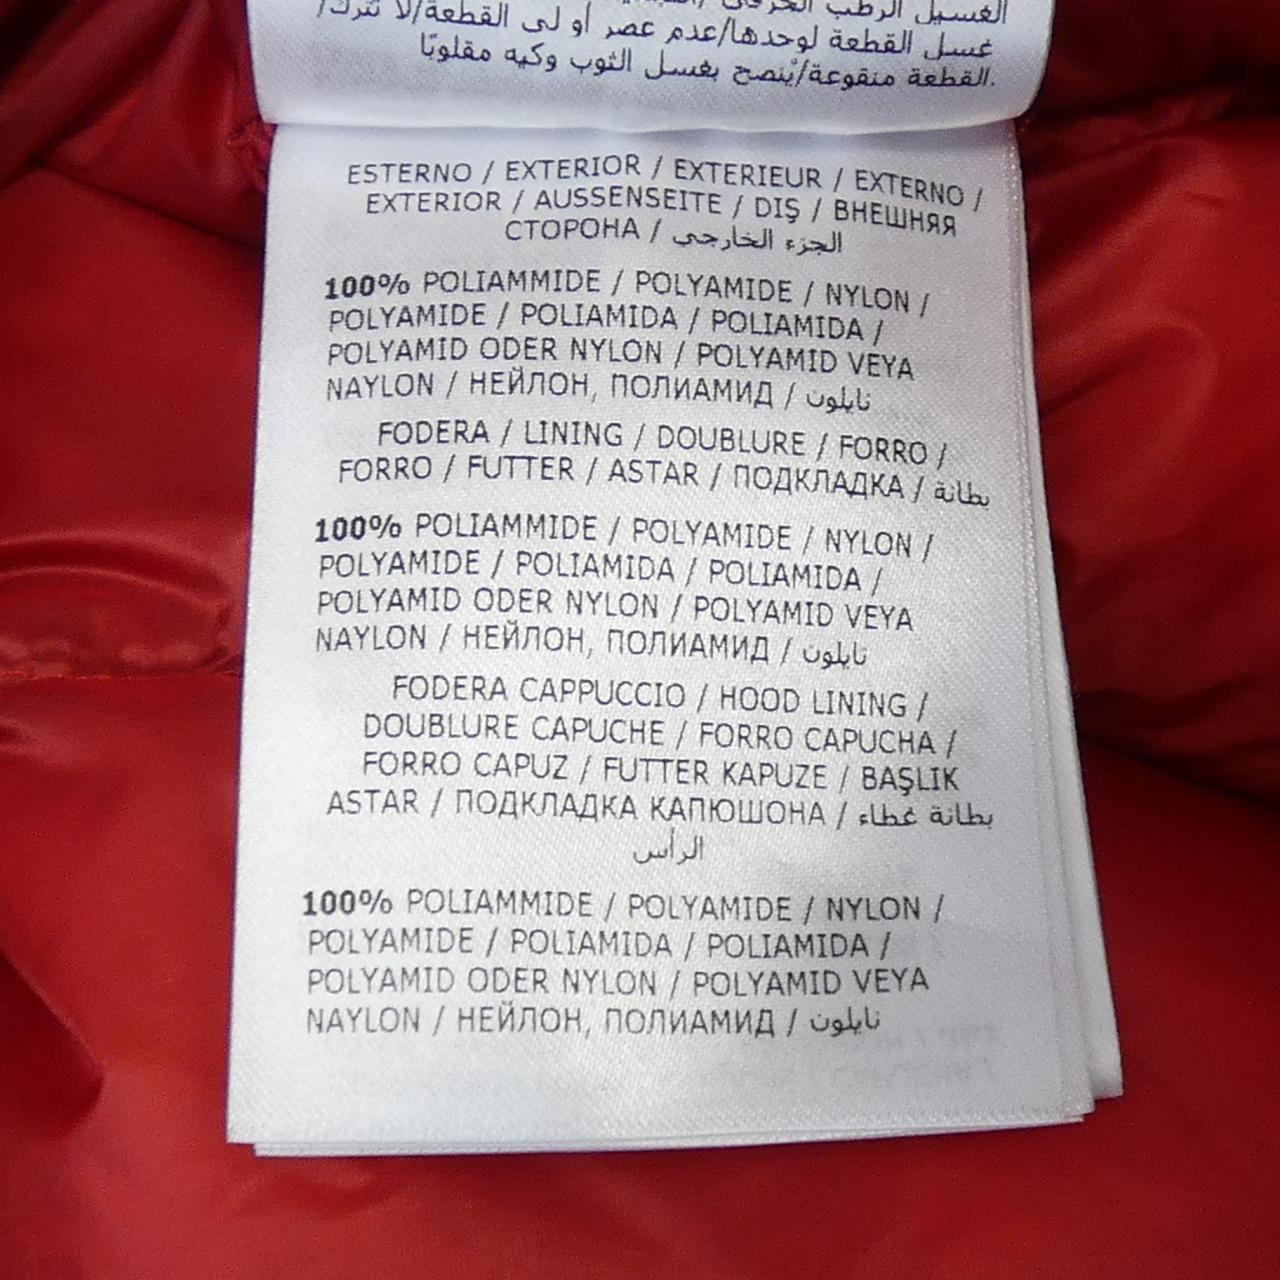 الغسيل الرطب الحرفي
غسل القطعة لوحدها/عدم عصر او لى القطعة/لا تترك/
القطعة منقوعة/يُنصح بغسل الثوب وكيه مقلوبًا.
ESTERNO / EXTERIOR / EXTERIEUR / EXTERNO /
EXTERIOR / AUSSENSEITE / DIŞ / ВНЕШНЯЯ
СТОРОНА / الجزء الخارجي
100% POLIAMMIDE / POLYAMIDE / NYLON /
POLYAMIDE / POLIAMIDA / POLIAMIDA /
POLYAMID ODER NYLON / POLYAMID VEYA
NAYLON / НЕЙЛОН, ПОЛИАМИД / نايلون
FODERA / LINING / DOUBLURE / FORRO /
FORRO / FUTTER / ASTAR / ПОДКЛАДКА / بطانة
100% POLIAMMIDE / POLYAMIDE / NYLON /
POLYAMIDE / POLIAMIDA / POLIAMIDA /
POLYAMID ODER NYLON / POLYAMID VEYA
NAYLON / НЕЙЛОН, ПОЛИАМИД / نايلون
FODERA CAPPUCCIO / HOOD LINING /
DOUBLURE CAPUCHE / FORRO CAPUCHA /
FORRO CAPUZ / FUTTER KAPUZE / BAŞLIK
ASTAR / ПОДКЛАДКА КАПЮШОНА / بطانة غطاء
الرأس
100% POLIAMMIDE / POLYAMIDE / NYLON /
POLYAMIDE / POLIAMIDA / POLIAMIDA /
POLYAMID ODER NYLON / POLYAMID VEYA
NAYLON / НЕЙЛОН, ПОЛИАМИД / نايلون